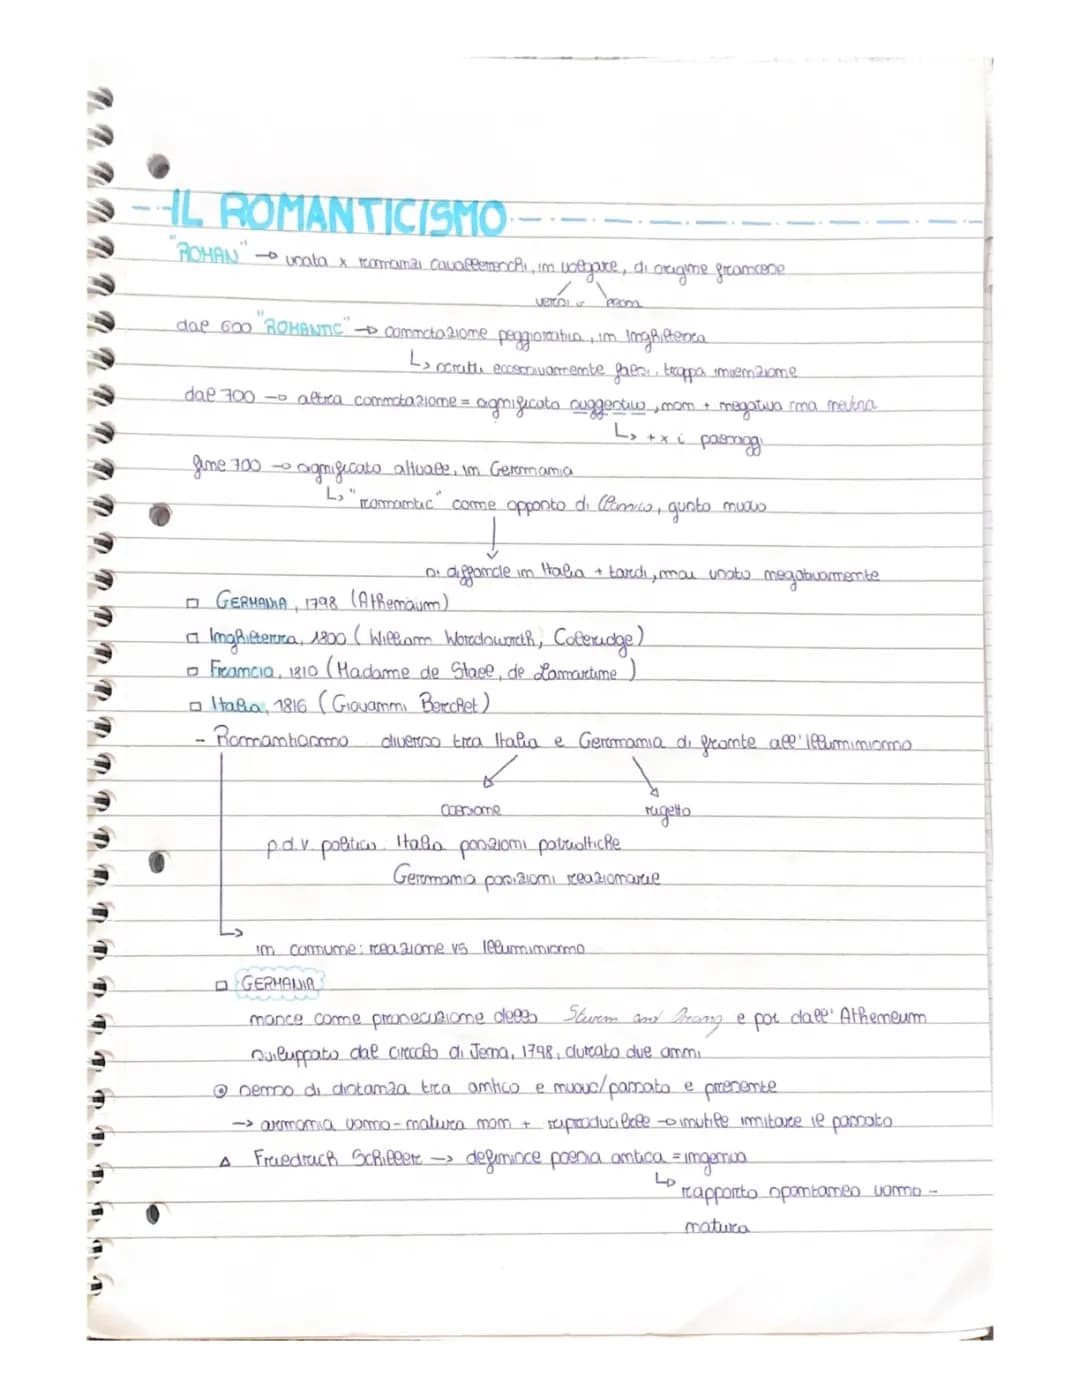 IL ROMANTICISMO
"ROMAN" → usata x romanzi cavallereschi, in volgare, di origine francese
versi e prosa
dal 600 "ROMANTIC" → connotazione peggiorativa, in Inghilterra
↳ scritti eccessivamente falsi, troppa invenzione
dal 700 → altra connotazione = significato suggestivo, non + negativa ma neutra
↳ + x i paesaggi
fine 700 → significato attuale, in Germania
↳ "romantic" come opposto di classico, gusto nuovo
si diffonde in Italia + tardi, mai usato negativamente
□ GERMANIA, 1798 (Athenäum)
□ Inghilterra, 1800 (William Wordsworth, Coleridge)
□ Francia, 1810 (Madame de Stael, de Lamartime)
□ Italia, 1816 (Giovanni Berchet)
- Romanticismo diverso tra Italia e Germania di fronte all'illuminismo
coesione rigetto
p.d.v. politico Italia posizioni patriottiche
Germania posizioni reazionarie
↳ in comune: reazione vs illuminismo
□ GERMANIA
nasce come prosecuzione dello Sturm and Drang e poi dall' Atheneum
sviluppato dal circolo di Jena, 1798, durato due anni
senso di distanza tra antico e nuovo/passato e presente
→ armonia uomo-natura non + riproducibile → inutile imitare il passato
△ Friedrich Schiller → definisce poesia antica = ingenua
↳ rapporto spontaneo uomo -
natura